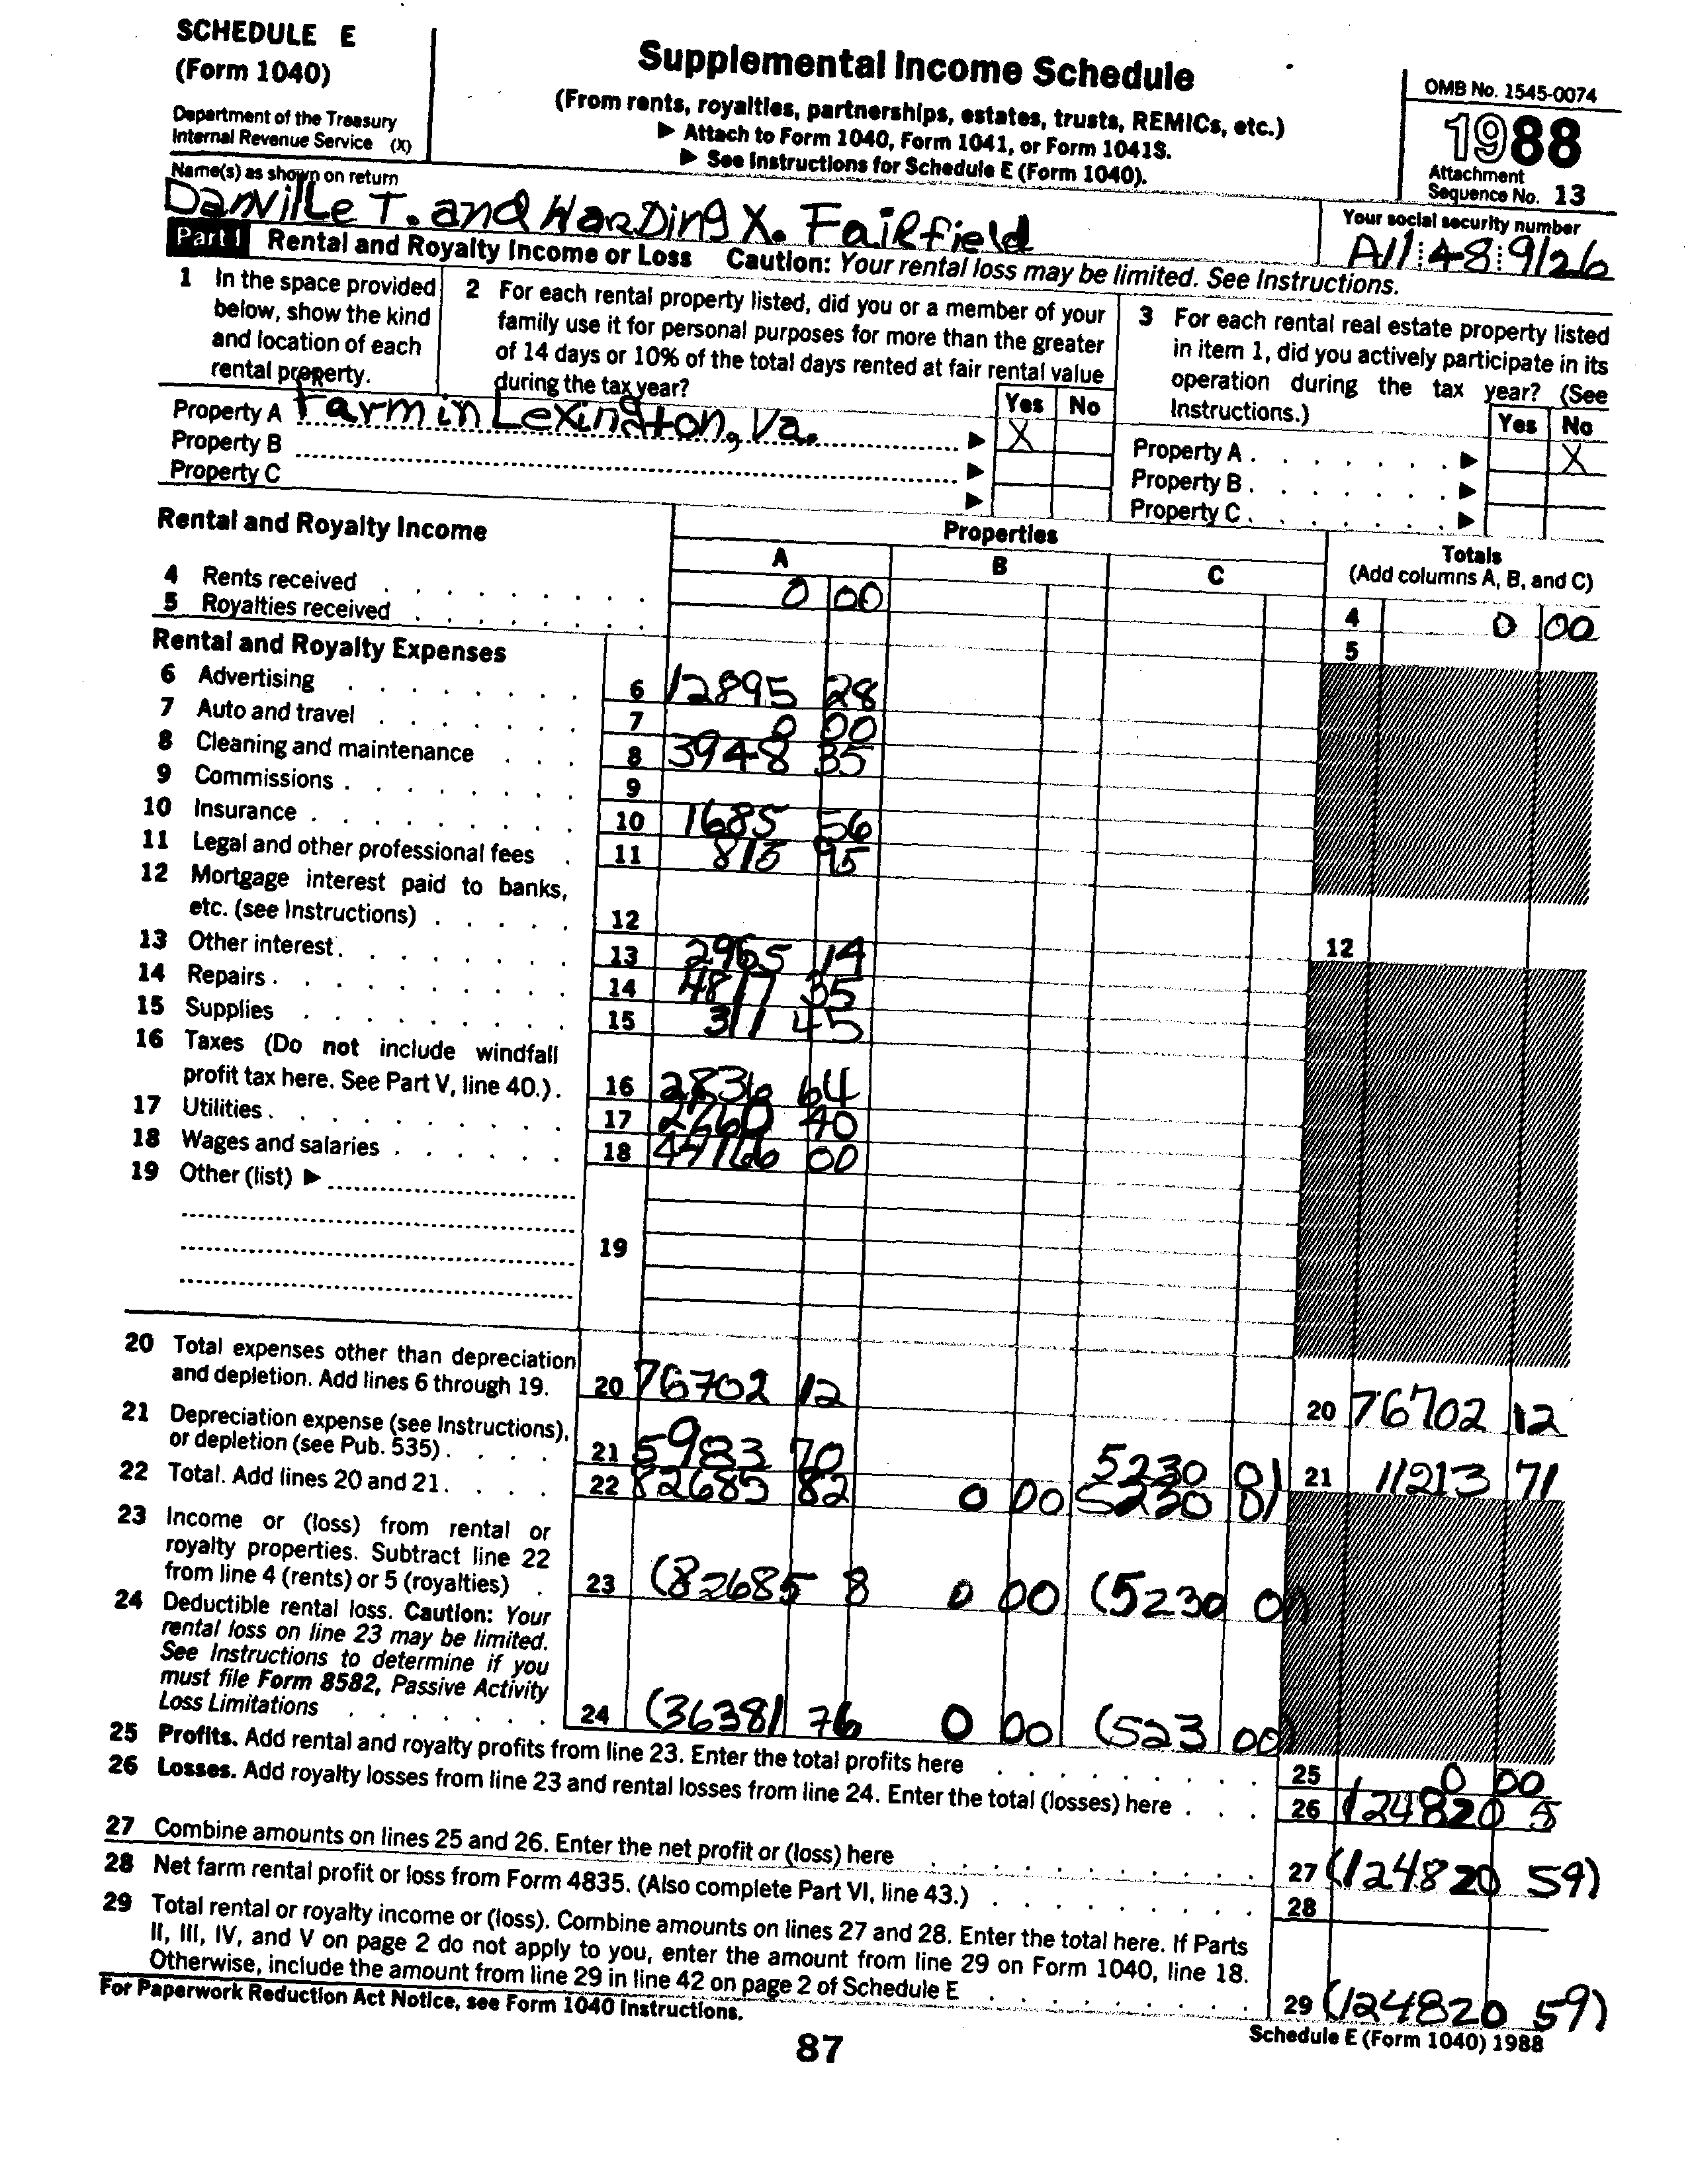 SCHEDULE E
(Form 1040)
Department of the Treasury
Internal Revenue Service (X)
Supplemental Income Schedule
(From rents, royalties, partnerships, estates, trusts, REMICs, etc.)
▶ Attach to Form 1040, Form 1041, or Form 1041S.
▶ See Instructions for Schedule E (Form 1040).
OMB No. 1545-0074
1988
Attachment
Sequence No. 13
Name(s) as shown on return
Danville T. and Harding X. Fairfield
Your social security number
A11 48 9126
Part I Rental and Royalty Income or Loss Caution: Your rental loss may be limited. See Instructions.
1 In the space provided
below, show the kind
and location of each
rental property.
2 For each rental property listed, did you or a member of your
family use it for personal purposes for more than the greater
of 14 days or 10% of the total days rented at fair rental value
during the tax year?
Yes No
3 For each rental real estate property listed
in item 1, did you actively participate in its
operation during the tax year? (See
Instructions.)
Yes No
Property A Farm in Lexington, Va. ▶ X
Property B ▶
Property C ▶
Property A . . . . . . . ▶ X
Property B . . . . . . . ▶
Property C . . . . . . . ▶
Rental and Royalty Income
Properties
A B C
Totals
(Add columns A, B, and C)
4 Rents received 0 00 4 0 00
5 Royalties received 5
Rental and Royalty Expenses
6 Advertising 6 12895 28
7 Auto and travel 7 0 00
8 Cleaning and maintenance 8 3948 35
9 Commissions 9
10 Insurance 10 1685 56
11 Legal and other professional fees 11 815 95
12 Mortgage interest paid to banks,
etc. (see Instructions) 12 12
13 Other interest 13 2965 14
14 Repairs 14 4817 35
15 Supplies 15 311 45
16 Taxes (Do not include windfall
profit tax here. See Part V, line 40.) 16 2836 64
17 Utilities 17 2260 40
18 Wages and salaries 18 44166 00
19 Other (list) ▶
19
20 Total expenses other than depreciation
and depletion. Add lines 6 through 19. 20 76702 12 20 76702 12
21 Depreciation expense (see Instructions),
or depletion (see Pub. 535) 21 5983 70 5230 01 21 11213 71
22 Total. Add lines 20 and 21 22 82685 82 0 00 5230 81
23 Income or (loss) from rental or
royalty properties. Subtract line 22
from line 4 (rents) or 5 (royalties) 23 (82685 8 0 00 (5230 0)
24 Deductible rental loss. Caution: Your
rental loss on line 23 may be limited.
See Instructions to determine if you
must file Form 8582, Passive Activity
Loss Limitations 24 (36381 76 0 00 (523 00)
25 Profits. Add rental and royalty profits from line 23. Enter the total profits here 25 0 00
26 Losses. Add royalty losses from line 23 and rental losses from line 24. Enter the total (losses) here 26 (124820 5
27 Combine amounts on lines 25 and 26. Enter the net profit or (loss) here 27 (124820 59)
28 Net farm rental profit or loss from Form 4835. (Also complete Part VI, line 43.) 28
29 Total rental or royalty income or (loss). Combine amounts on lines 27 and 28. Enter the total here. If Parts
II, III, IV, and V on page 2 do not apply to you, enter the amount from line 29 on Form 1040, line 18.
Otherwise, include the amount from line 29 in line 42 on page 2 of Schedule E 29 (124820 59)
For Paperwork Reduction Act Notice, see Form 1040 Instructions.
Schedule E (Form 1040) 1988
87